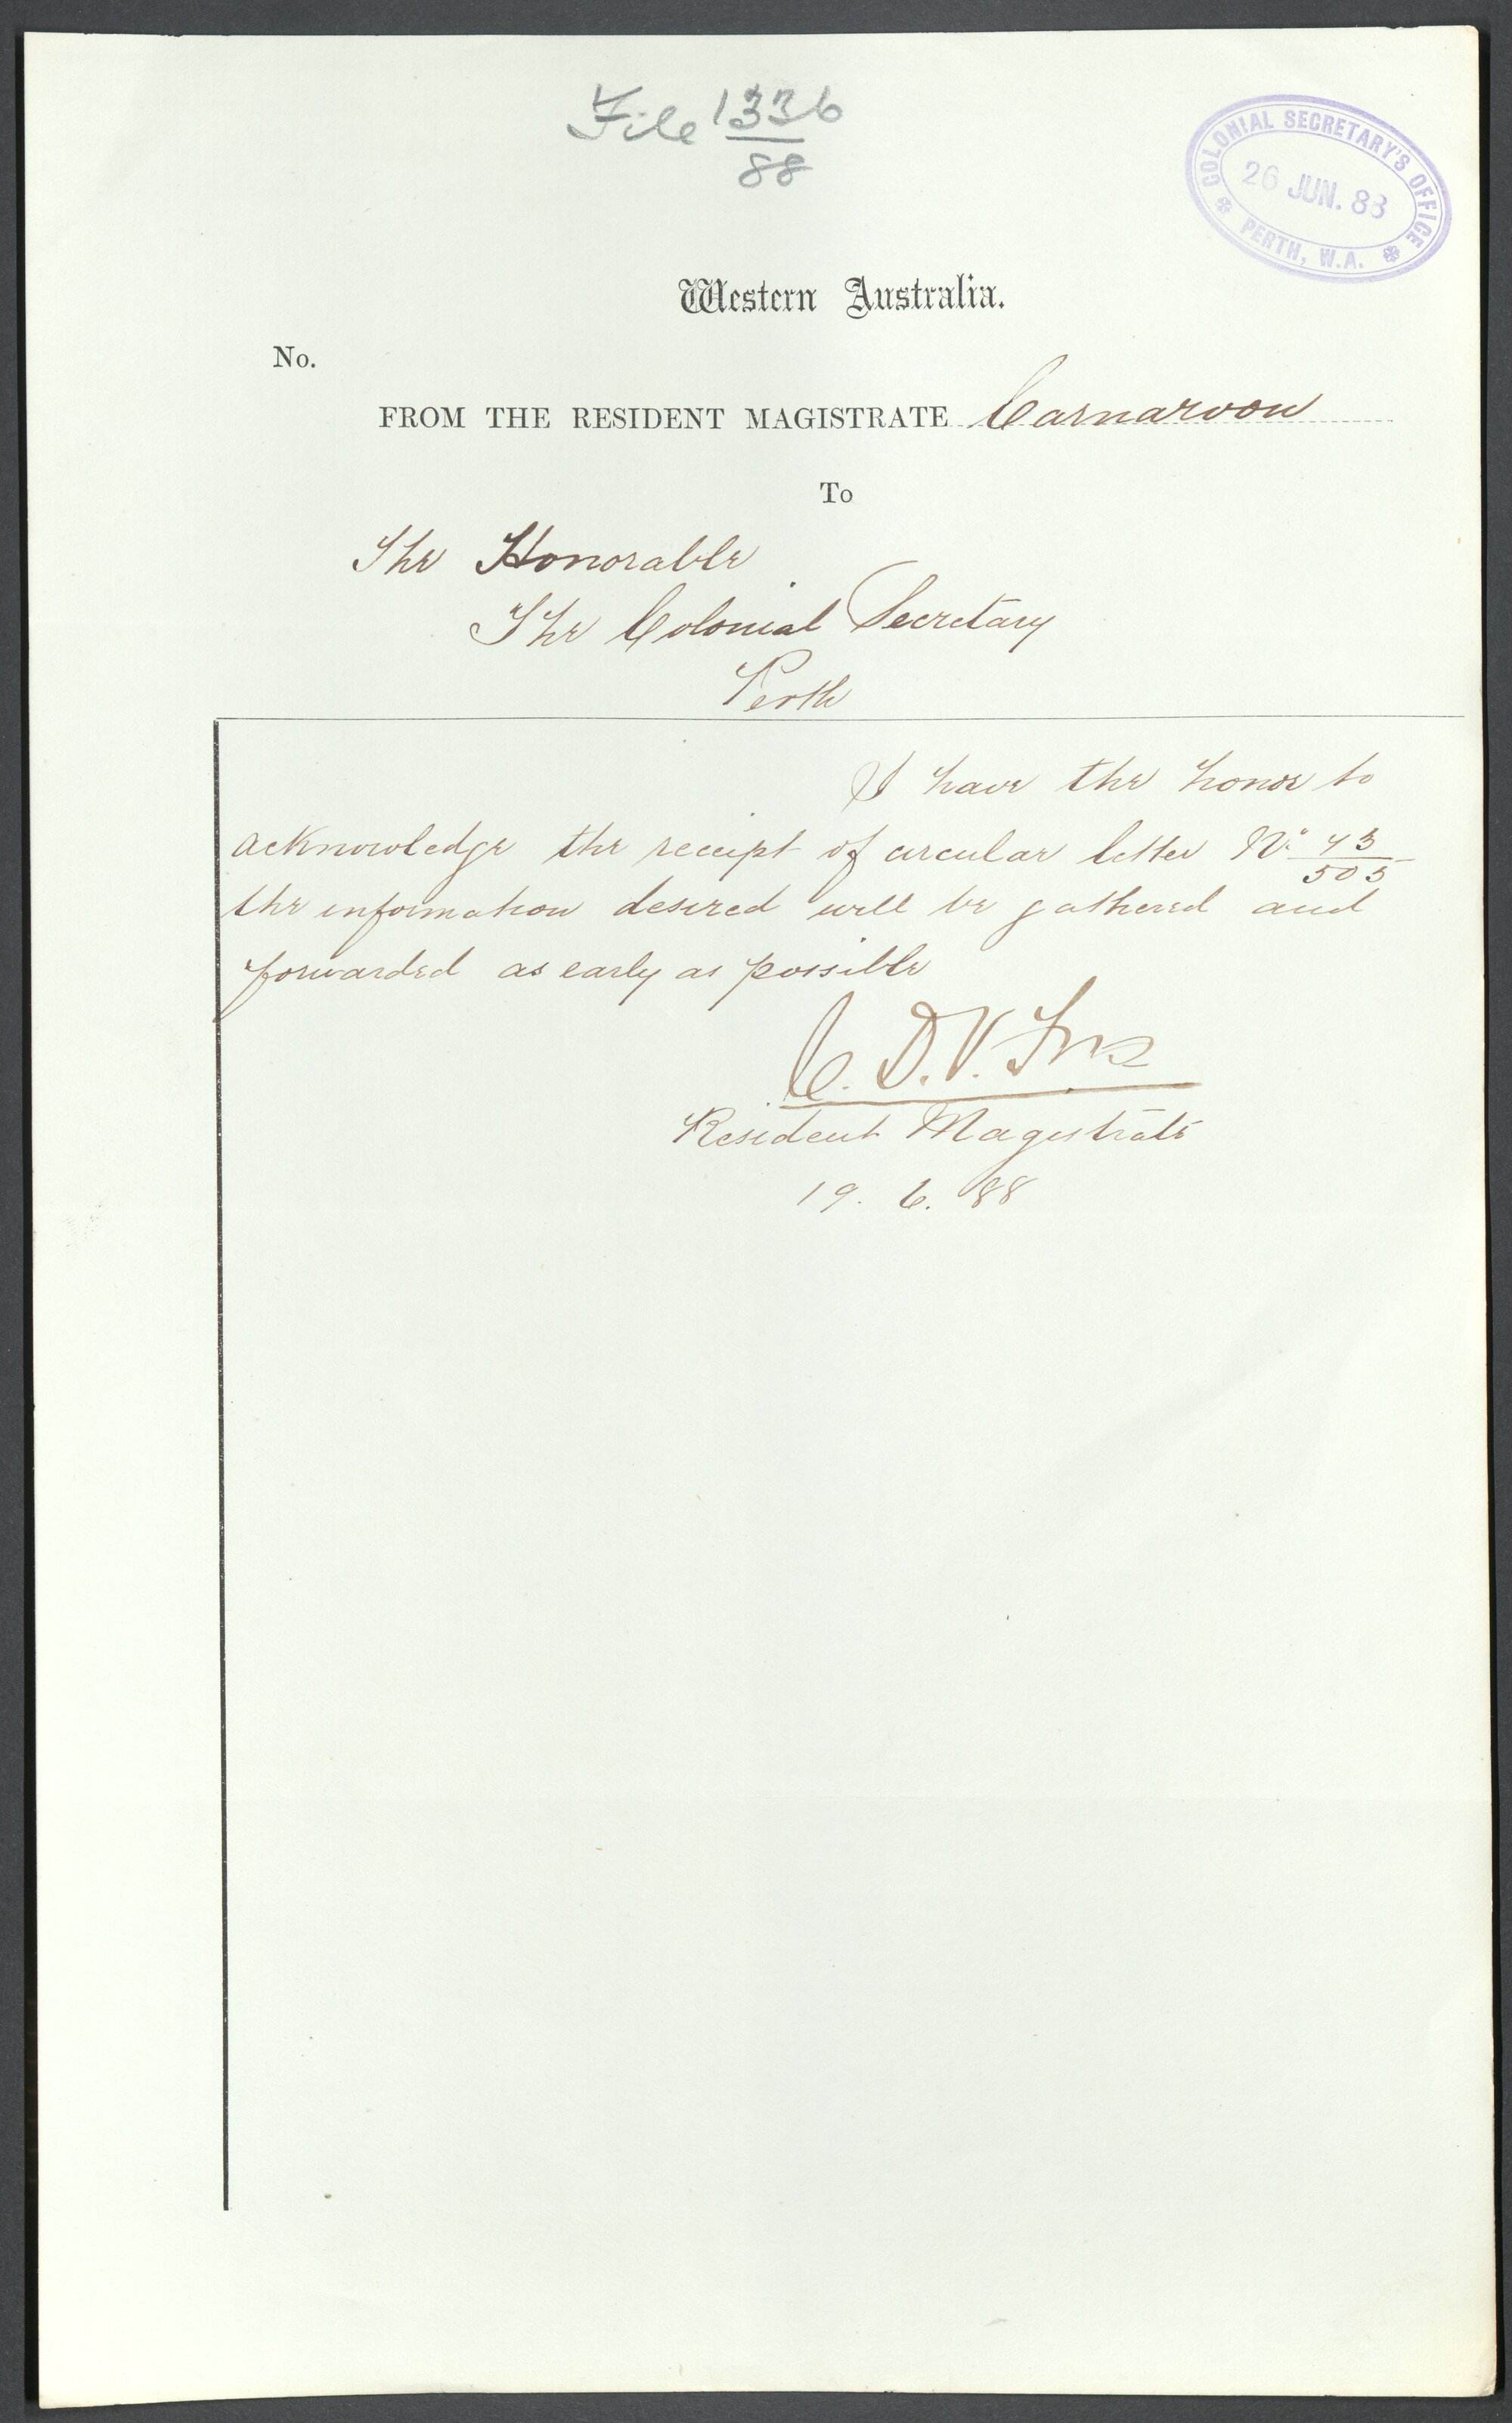 File 1336
88
COLONIAL SECRETARY'S OFFICE
26 JUN. 88
PERTH, W.A.
Western Australia.
No.
FROM THE RESIDENT MAGISTRATE Carnarvon
To
The Honorable
The Colonial Secretary
Perth
I have the honor to
acknowledge the receipt of circular letter No 43
505
the information desired will be gathered and
forwarded as early as possible
C. D. V. Foss
Resident Magistrate
19. 6. 88